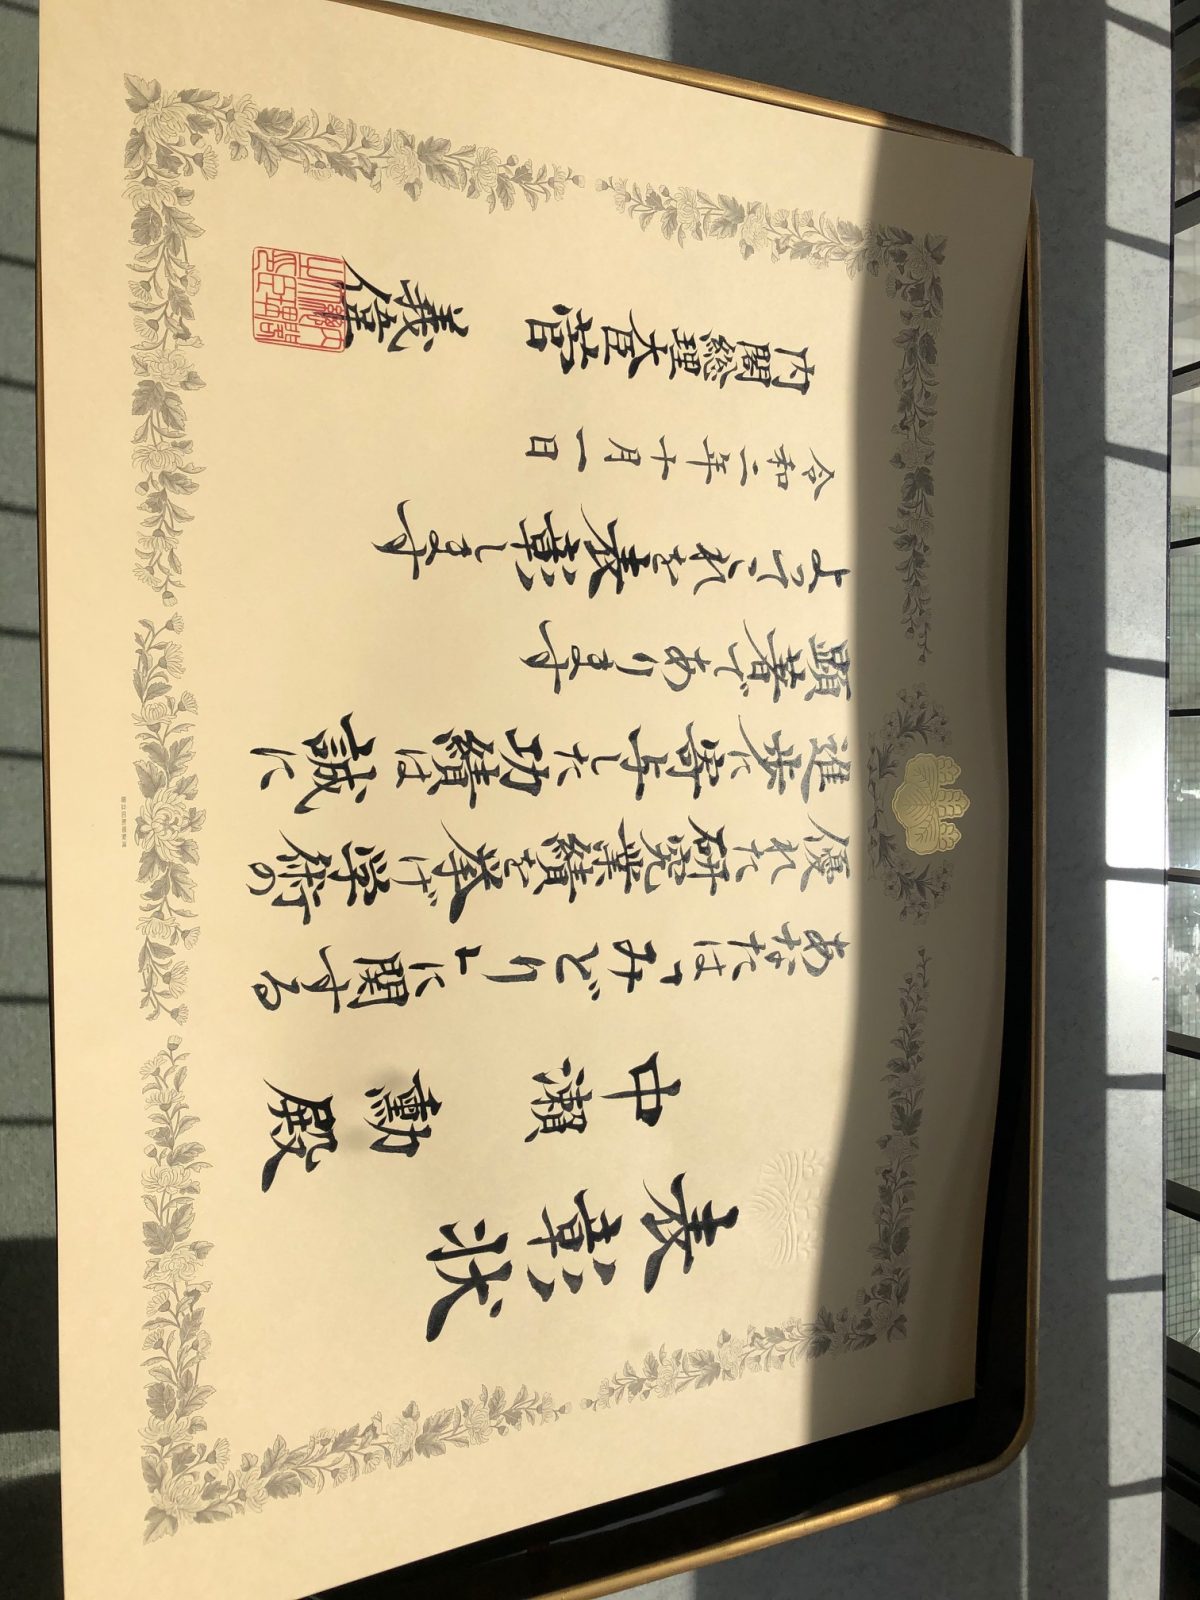 表彰状
中瀬勳殿
あなたはみどりに関する
優れた研究業績を挙げ学術の
進歩に寄与した功績は誠に
顕著であります
よってこれを表彰します
令和二年十月一日
内閣総理大臣菅
義偉